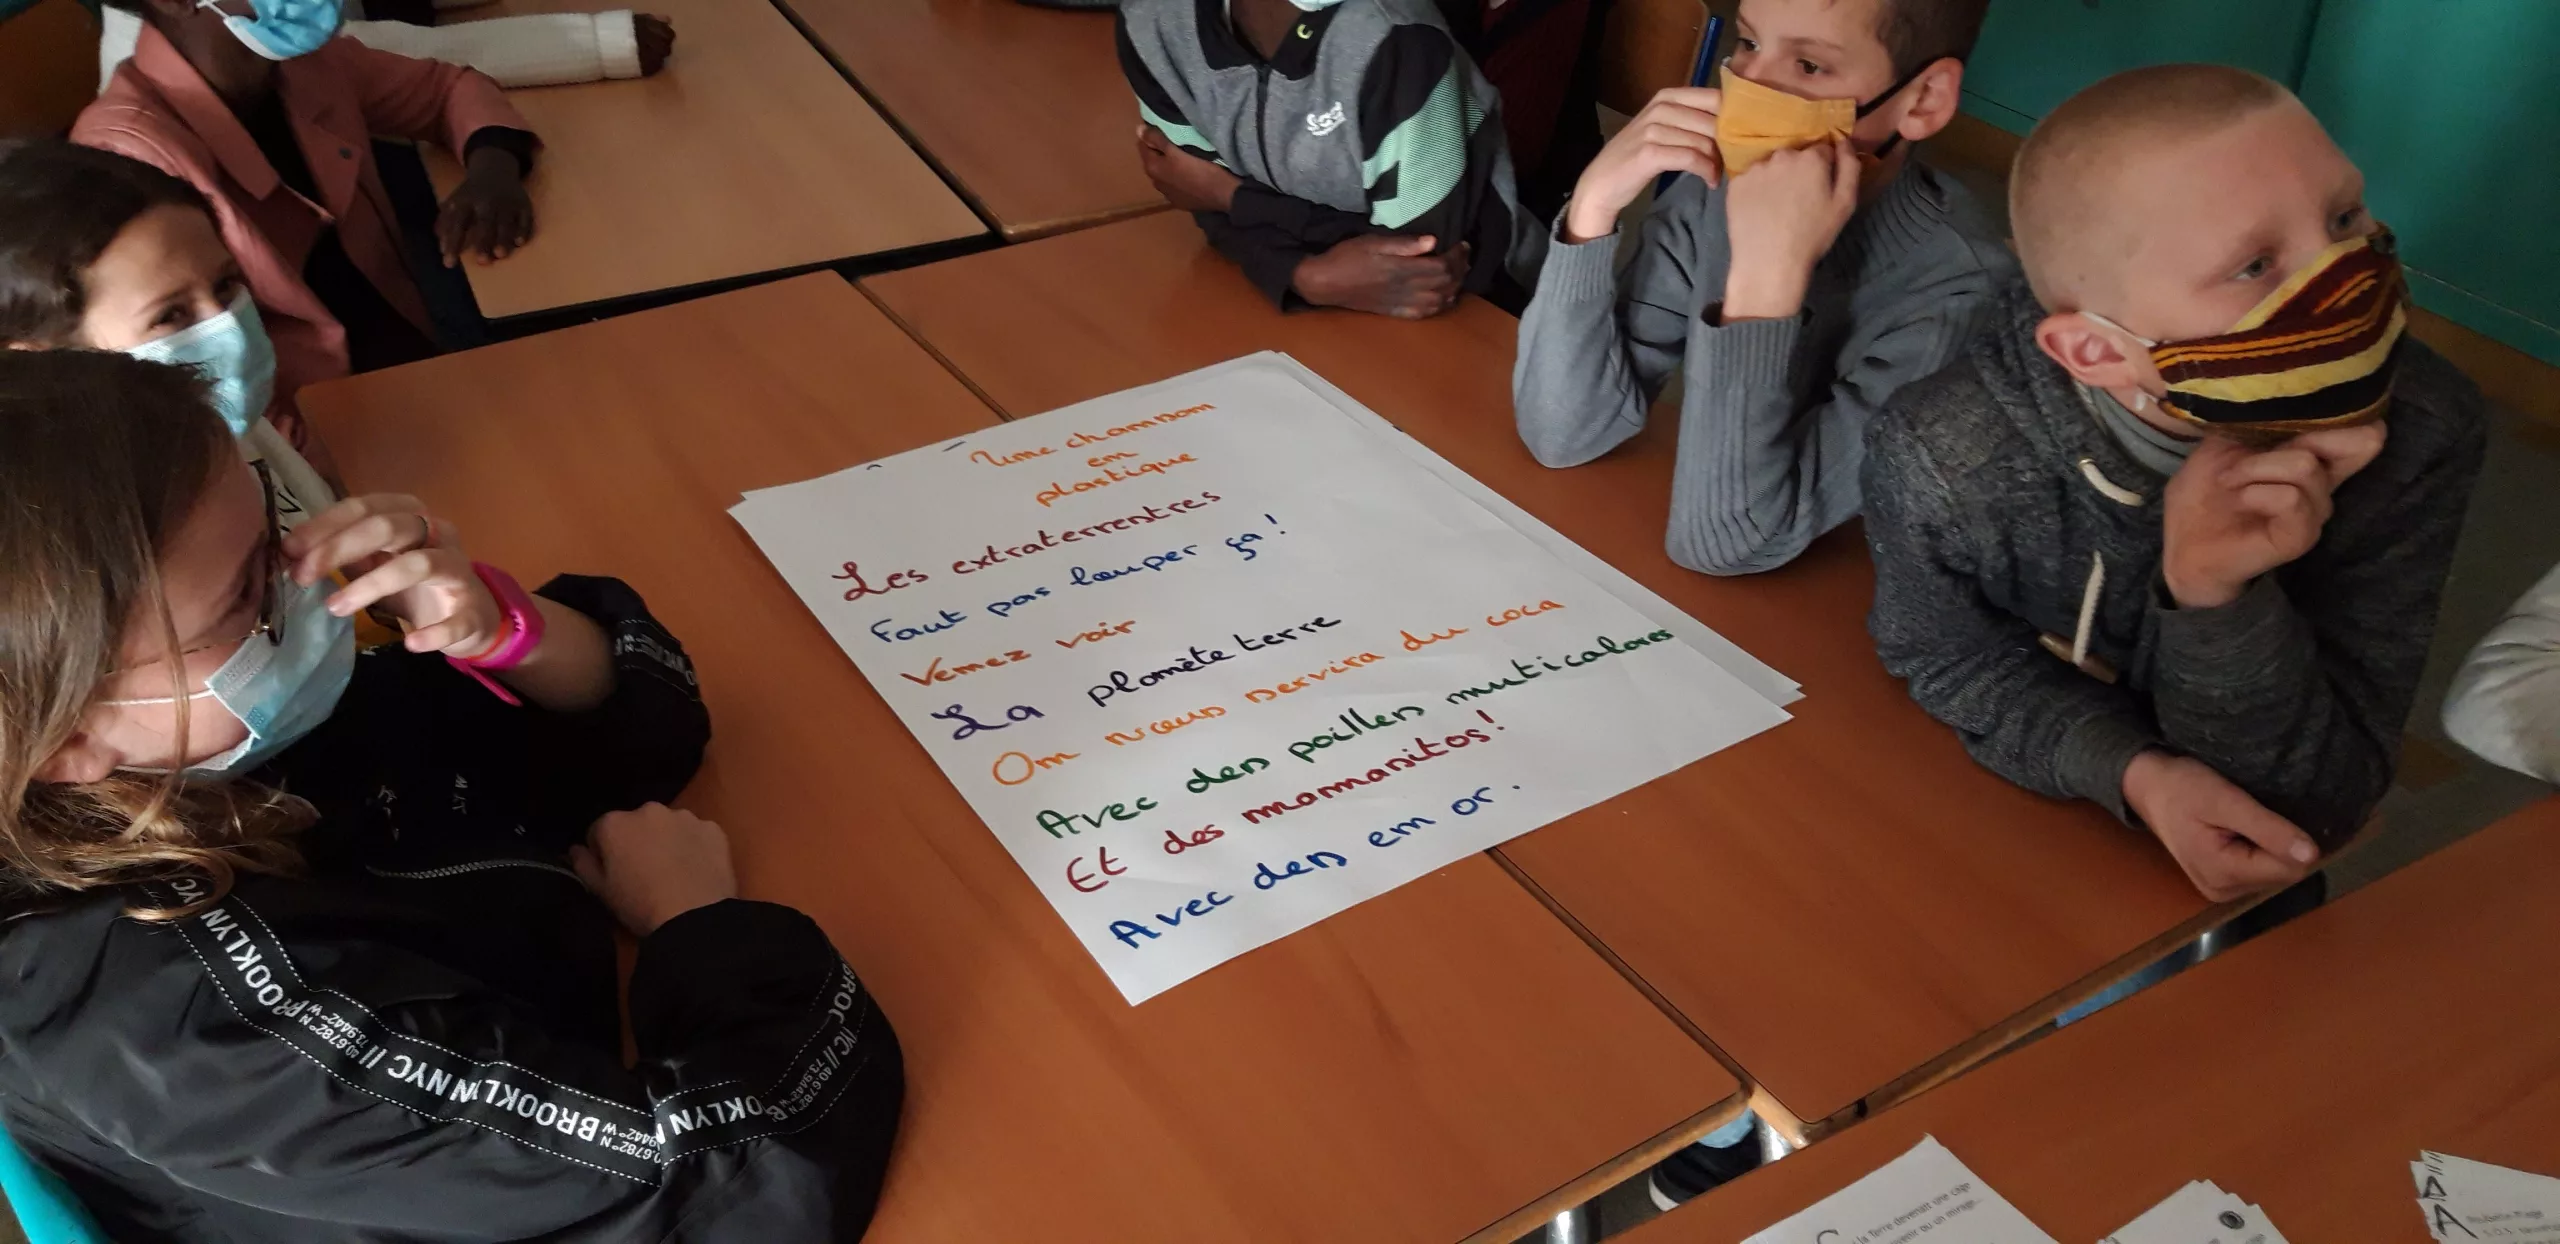 Une chanson
en
plastique
Les extraterrestres
Faut pas louper ça!
Venez voir
La planète terre
On nous servira du coca
Avec des pailles muticolores
Et des mamasitos!
Avec des en or.
BROOKLYN NYC // BROOKLYN
40.6782° N
73.9442° W
la Terre devenait une cage
ou un mirage...